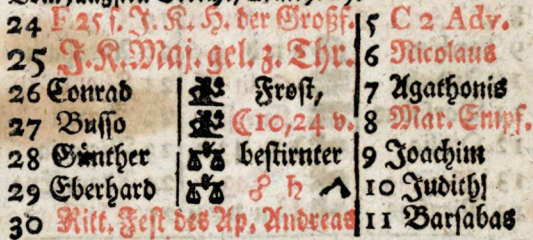 24 F 25 s. J. K. H. der Großf. 5 C 2 Adv.
25 J. K. Maj. gel. z. Thr. 6 Nicolaus
26 Conrad Frost, 7 Agathonis
27 Busso ☾10,24 v. 8 Mar. Empf.
28 Günther bestirnter 9 Joachim
29 Eberhard ☍ ♄ 10 Judith
30 Ritt. Fest des Ap. Andreas 11 Barsabas